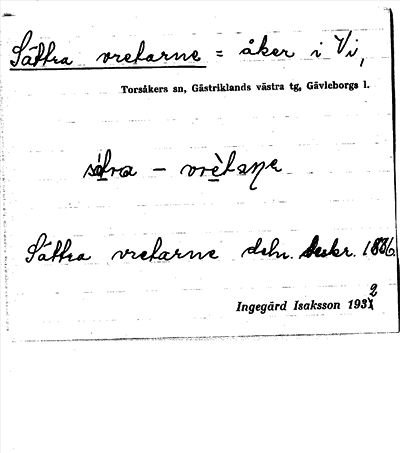 Sättra vretarne = åker i Vi,
Torsåkers sn, Gästriklands västra tg, Gävleborgs l.
Sättra vretarne deln. beskr. 1886.
Ingegärd Isaksson 1932